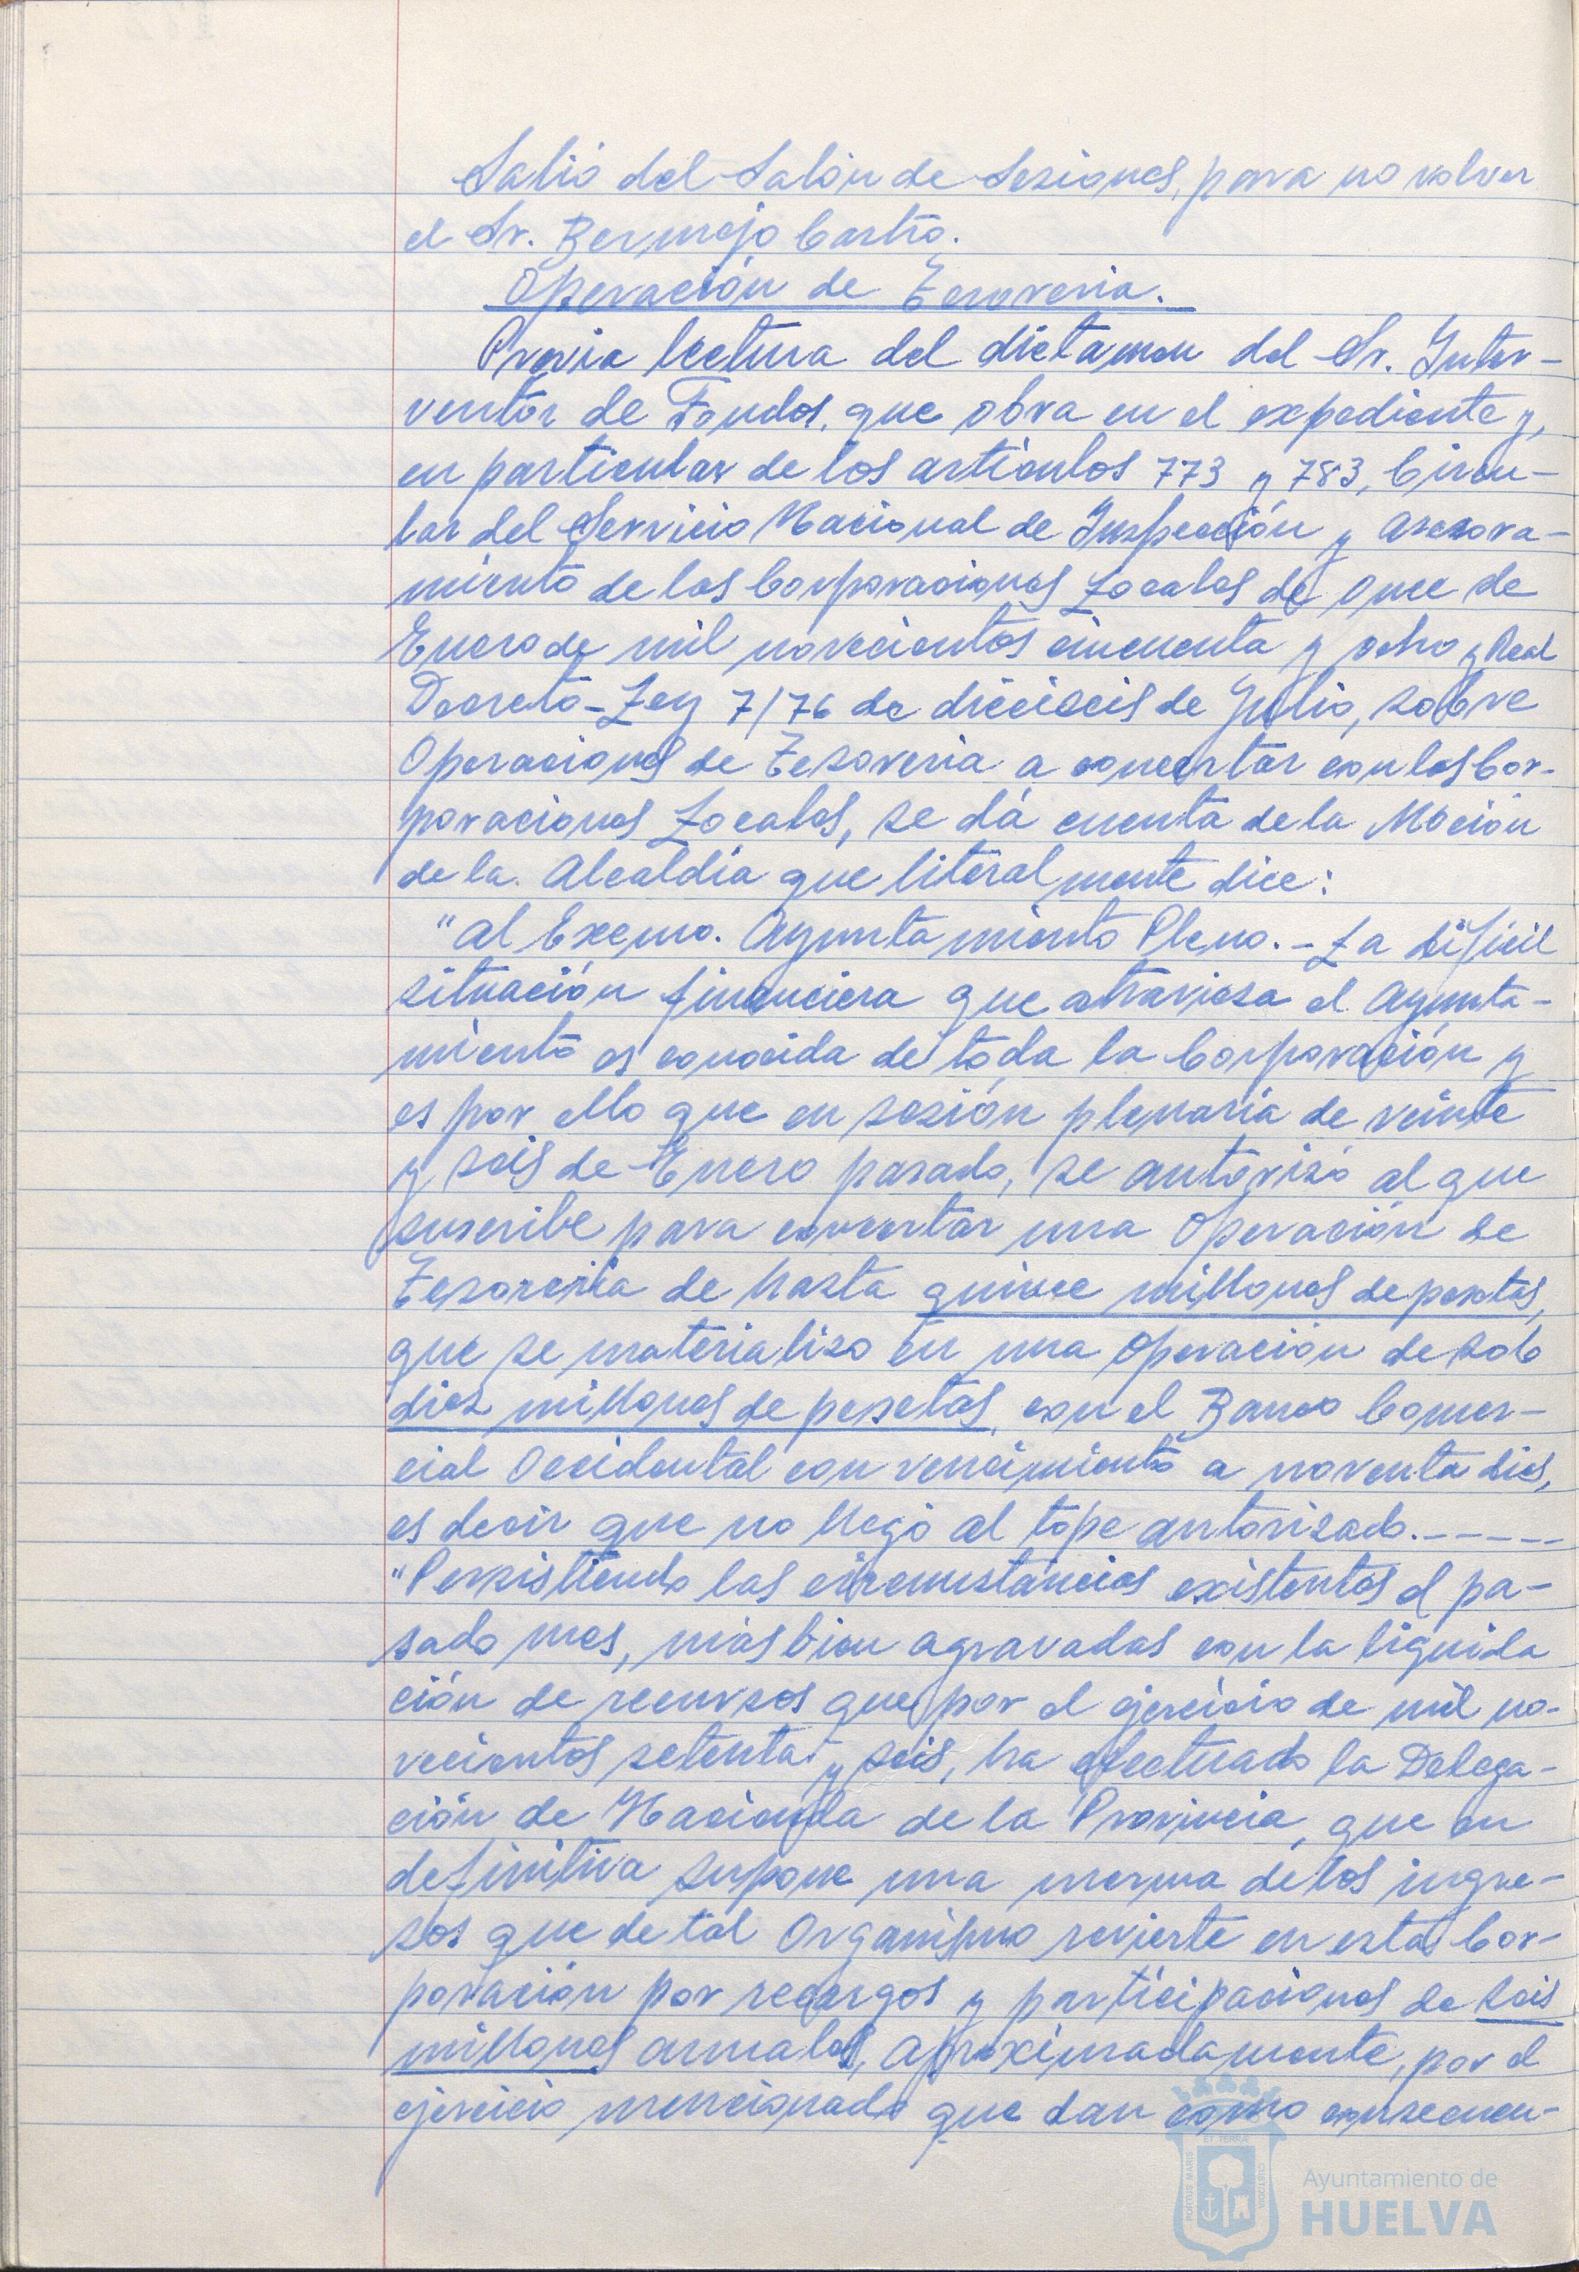 Salió del Salón de Sesiones, para no volver
el Sr. Bermejo Castro.
Operación de Tesorería.
Previa lectura del dictamen del Sr. Inter-
ventor de Fondos, que obra en el expediente y,
en particular de los artículos 773 y 783, Circu-
lar del Servicio Nacional de Inspección y Asesora-
miento de las Corporaciones Locales de once de
Enero de mil novecientos cincuenta y ocho y Real
Decreto-Ley 7/76 de dieciseis de Julio, sobre
Operaciones de Tesorería a concertar con las Cor-
poraciones Locales, se dá cuenta de la Moción
de la Alcaldía que literalmente dice:
"Al Excmo. Ayuntamiento Pleno.- La dificil
situación financiera que atraviesa el Ayunta-
miento es conocida de toda la Corporación y
es por ello que en sesión plenaria de veinte
y seis de Enero pasado, se autorizó al que
suscribe para concertar una Operación de
Tesorería de hasta quince millones de pesetas,
que se materializo en una Operación de solo
diez millones de pesetas, con el Banco Comer-
cial Occidental con vencimiento a noventa dias,
es decir que no llegó al tope autorizado.-----
"Persistiendo las circunstancias existentes el pa-
sado mes, más bien agravadas con la liquida
ción de recursos que por el ejercicio de mil no-
vecientos setenta y seis, ha efectuado la Delega-
ción de Hacienda de la Provincia, que en
definitiva supone una merma de los ingre-
sos que de tal Organismo revierte en esta Cor-
poración por recargos y participaciones de seis
millones anuales, aproximadamente, por el
ejercicio mencionado que dan como consecuen-
PORTUS MARIS ET TERRAE CUSTODIA
Ayuntamiento de
HUELVA